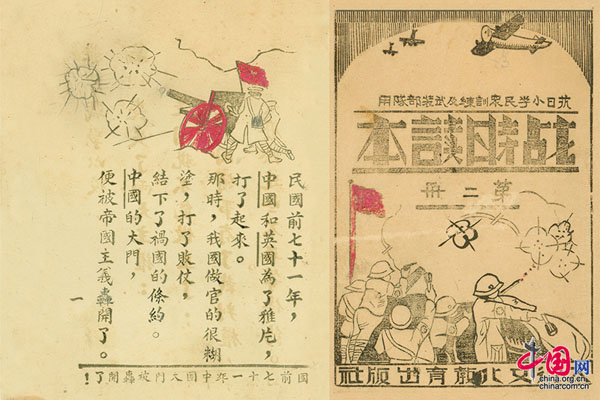 民國前七十一年，
中國和英國為了雅片，
打了起來。
那時，我國做官的很糊
塗，打了敗仗，
結下了禍國的條約。
中國的大門，
便被帝國主義轟開了。
一
國前七十一年中国大門被轟開了！
抗日小学民衆訓練及武裝部隊用
战時讀本
第二冊
文化教育出版社
中国网
china.org.cn
china.com.cn